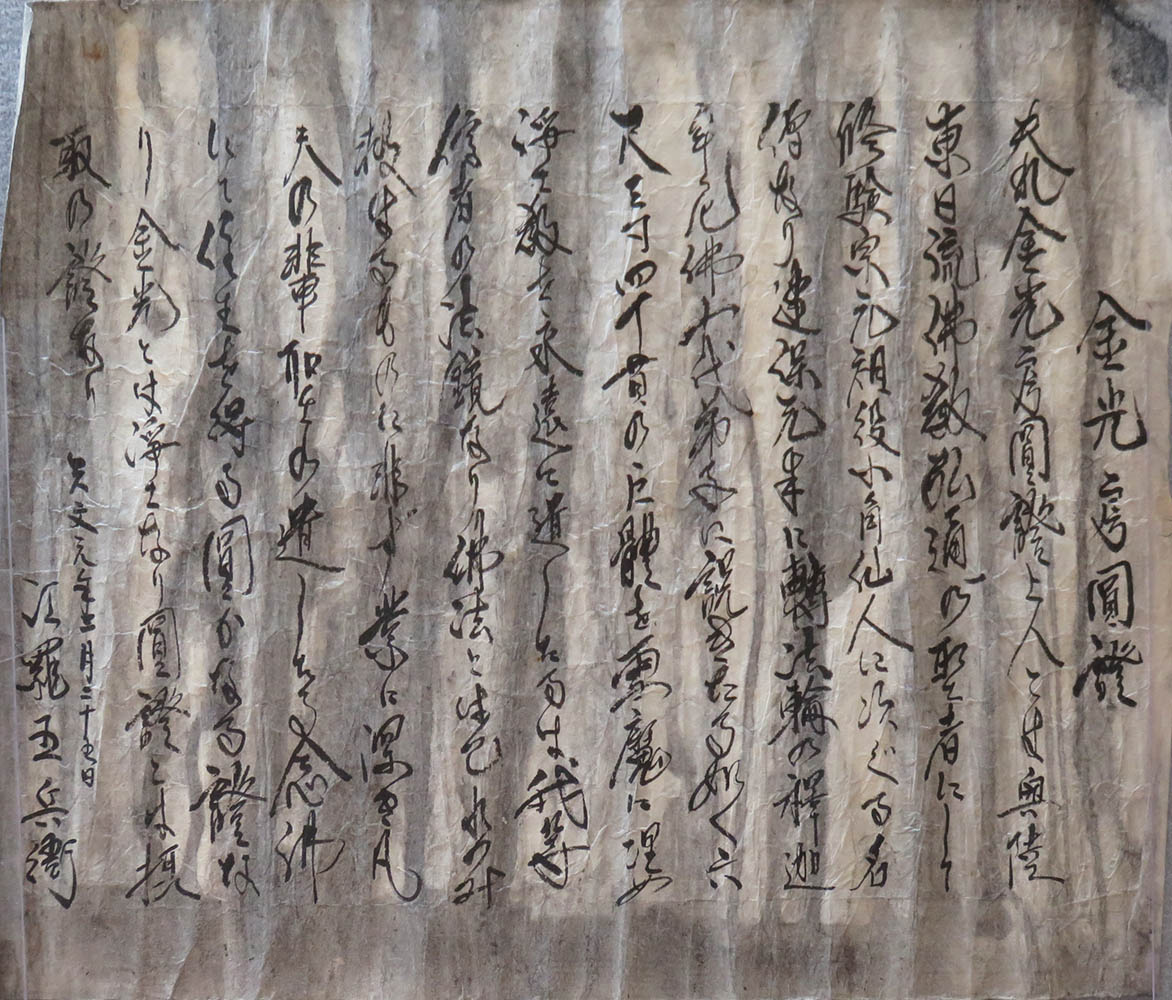 金光房圓證
夫れ金光房圓證上人とは奥陸
東日流佛教弘通の聖者にして
修験宗元祖役小角仙人に次ぐる名
僧なり建保元年に轉法輪の釋迦
牟尼佛 弟子に説きたる如く六
尺三寸四十貫の巨體を悪魔に埋め
浄土教を永遠に遺したるは我等
信者の法鏡なり佛法とは己れのみ
救はるものに非ず業に深き凡
夫の非事聖者の遺したる念佛
にて往生を得る圓かなる證な
り金光とは浄土なり圓證とは摂
取の證なり
天文元年十二月二十五日
江羅五兵衛